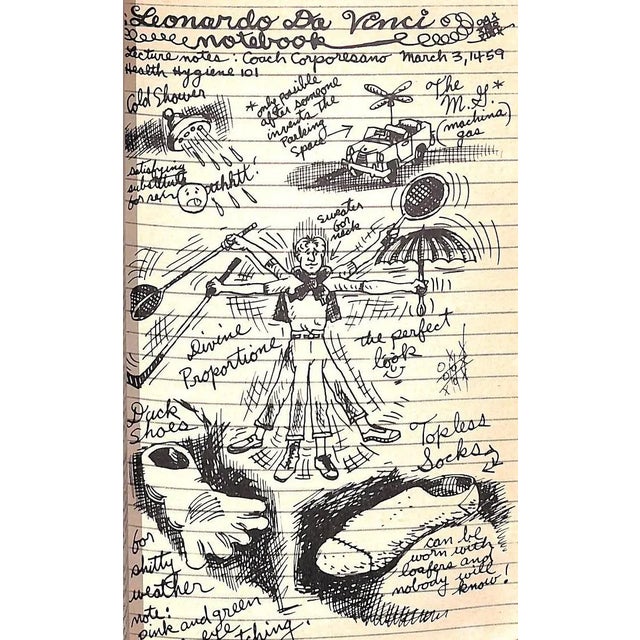 Leonardo Da Vinci
notebook
Lecture notes: Coach Corporesano March 3, 1459
Health Hygiene 101
Cold Shower
satisfying
substitute
for sex
uhhtt!
* only possible
after someone
invents the
Parking
Space
The
M.G.*
(machina
gas)
sweater
for
neck
Divine
Proportione
the perfect
look
Duck
Shoes
for
shitty
weather
note:
pink and green
etching!
Topless
Socks
can be
worn with
loafers and
nobody will
know!